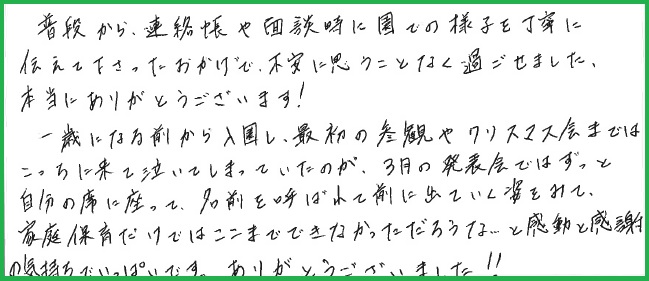 普段から、連絡帳や面談時に園での様子を丁寧に
伝えて下さったおかげで、不安に思うことなく過ごせました、
本当にありがとうございます!
一歳になる前から入園し、最初の参観やクリスマス会までは
こっちに来て泣いてしまっていたのが、3月の発表会ではずっと
自分の席に座って、名前を呼ばれて前に出ていく姿をみて、
家庭保育だけではここまでできなかっただろうな…と感動と感謝
の気持ちでいっぱいです。ありがとうございました!!